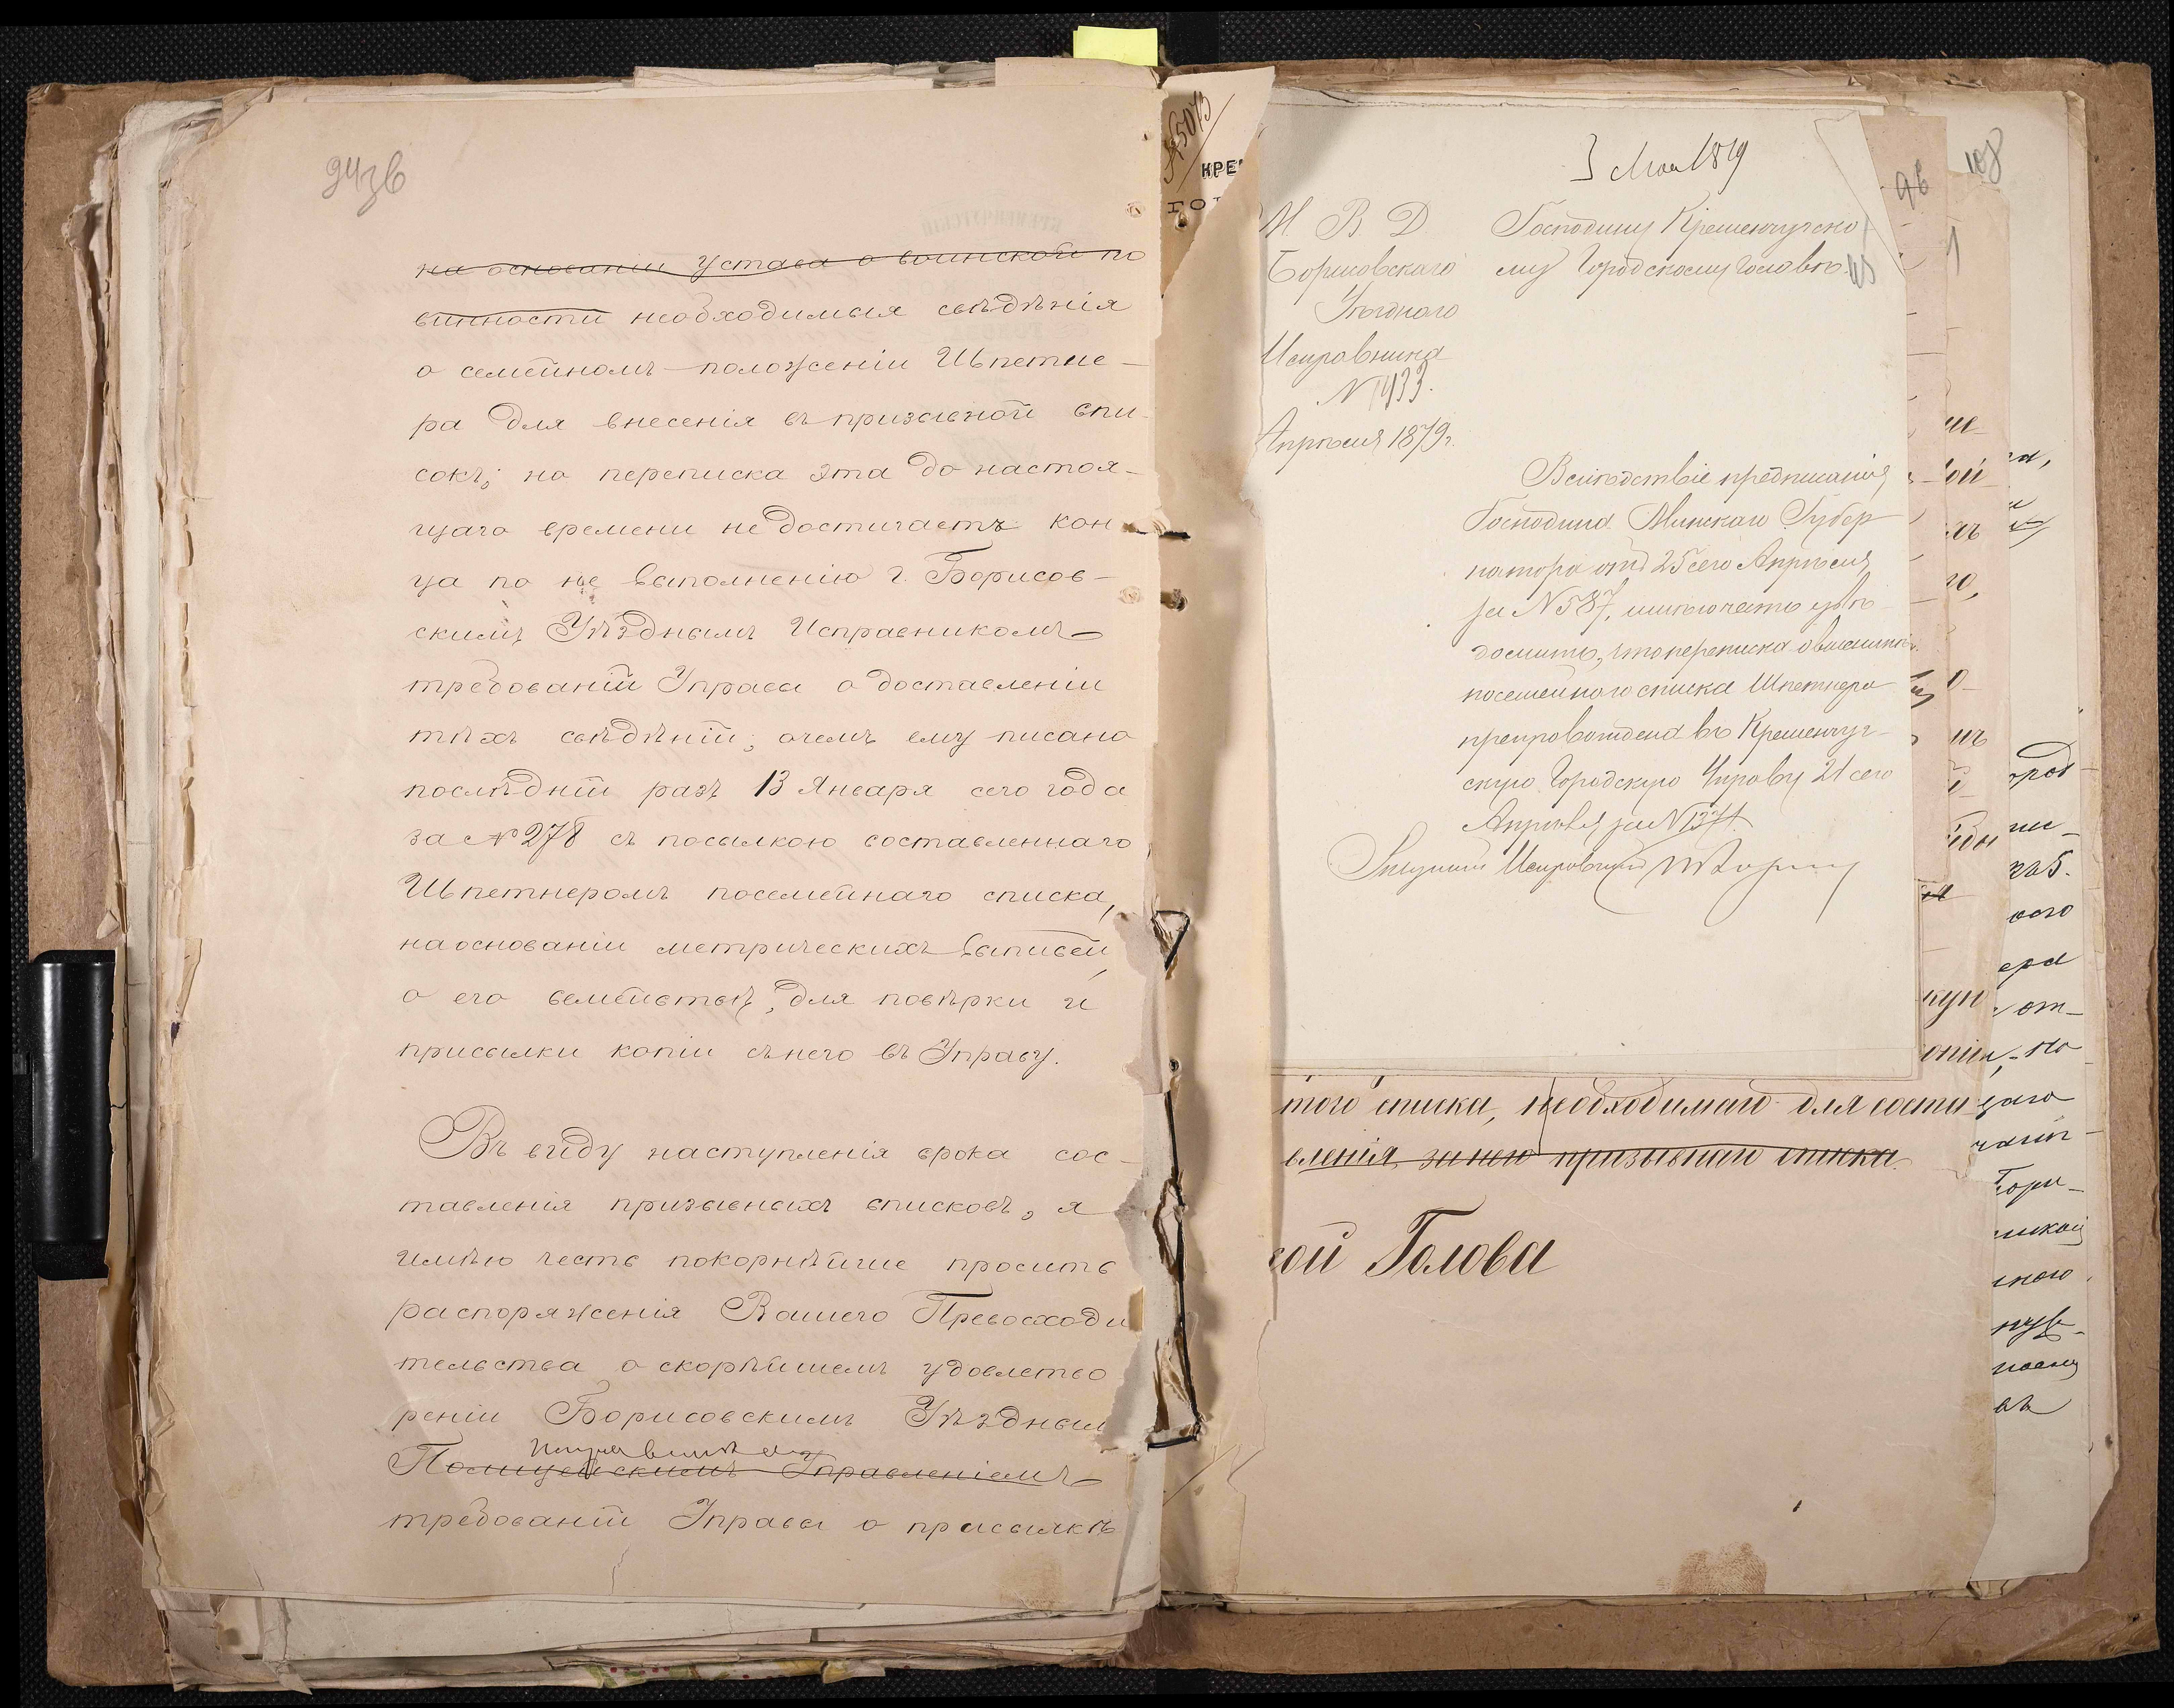 94зв
на основаніи Устава о воинской по
винности необходимыя свѣдѣнія
о семейномъ положеніи Шпетне-
ра для внесенія въ призывной спи-
сокъ; но переписка эта до настоя-
щаго времени не достигаетъ кон-
ца по не выполненію г. Борисов-
скимъ Уѣзднымъ Исправникомъ
требованій Управы о доставленіи
тѣхъ свѣдѣній; о чемъ ему писано
послѣдній разъ 13 Января сего года
за № 278 съ посылкою составленнаго
Шпетнеромъ посемейнаго списка,
на основаніи метрическихъ выписей
о его семействѣ, для повѣрки и
присылки копіи съ него въ Управу.
Въ виду наступленія срока сос-
тавленія призывныхъ списковъ, я
имѣю честь покорнѣйше просить
распоряженія Вашего Превосходи
тельства о скорѣйшемъ удовлетво
реніи Борисовскимъ Уѣздным
Исправникомъ
Полицейскимъ Управленіемъ
требованій Управы о присылкѣ
КРЕ
3 Мая 1879
М. В. Д.
Борисовскаго
Уѣзднаго
Исправника
№ 1433.
Апрѣля 1879 г.
Господину Кременчугско
му Городскому Головѣ.
Вслѣдствіе предписанія
Господина Минскаго Губер
натора отъ 25 сего Апрѣля
за № 587, имѣю честь увѣ
домить, что переписка о высылкѣ
посемейного списка Шпетнера
препровождена въ Кременчуг-
скую Городскую Управу 21 сего
Апрѣля за № 1374.
Уѣздный Исправникъ
того списка, необходимаго для соста
вленія за нею призывнаго списка
ой Голова
96
108